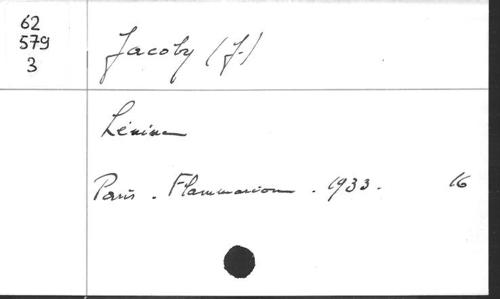 62
579
3
Jacoby (J.)
Lénine
Paris. Flammarion. 1933. 16